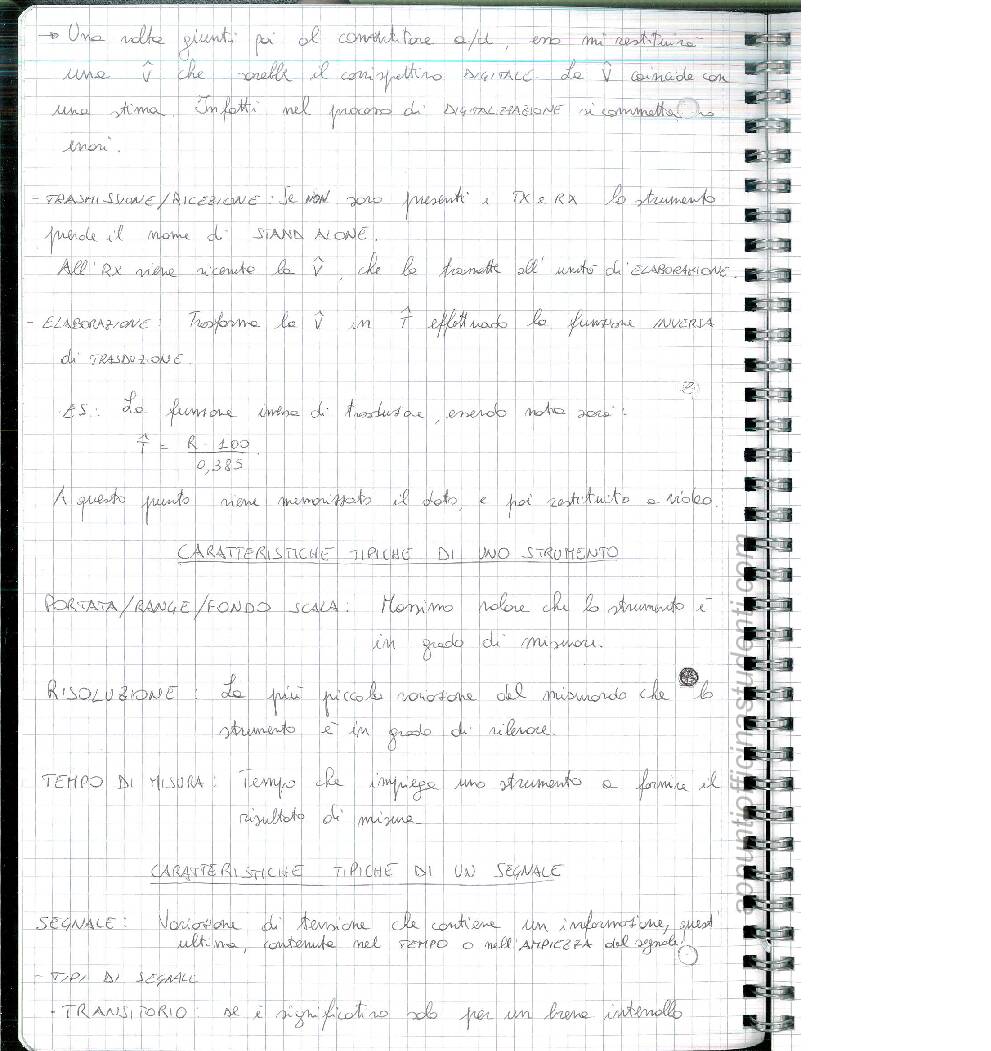 → Una volta giunti poi al convertitore a/d, esso mi restituirà
una V̂ che sarebbe il corrispettivo DIGITALE. La V̂ coincide con
una stima. Infatti nel processo di DIGITALIZZAZIONE si commettono
errori.
- TRASMISSIONE/RICEZIONE: Se NON sono presenti i TX e RX lo strumento
prende il nome di STAND ALONE.
All'RX viene ricevuto la V̂, che la trasmette all'unità di ELABORAZIONE.
- ELABORAZIONE: Trasforma la V̂ in T̂ effettuando la funzione INVERSA
di TRASDUZIONE.
ES.: La funzione inversa di trasduzione, essendo nota sarà:
T̂ = R · 100 / 0,385
A questo punto viene memorizzato il dato, e poi restituito a video.
CARATTERISTICHE TIPICHE DI UNO STRUMENTO
PORTATA/RANGE/FONDO SCALA: Massimo valore che lo strumento è
in grado di misurare.
RISOLUZIONE: La più piccola variazione del misurando che lo
strumento è in grado di rilevare.
TEMPO DI MISURA: Tempo che impiega uno strumento a fornire il
risultato di misura.
CARATTERISTICHE TIPICHE DI UN SEGNALE
SEGNALE: Variazione di tensione che contiene un informazione, quest'
ultima, contenuta nel TEMPO o nell'AMPIEZZA del segnale.
- TIPI DI SEGNALE
- TRANSITORIO: se è significativo solo per un breve intervallo
appuntiofficinastudenti.com